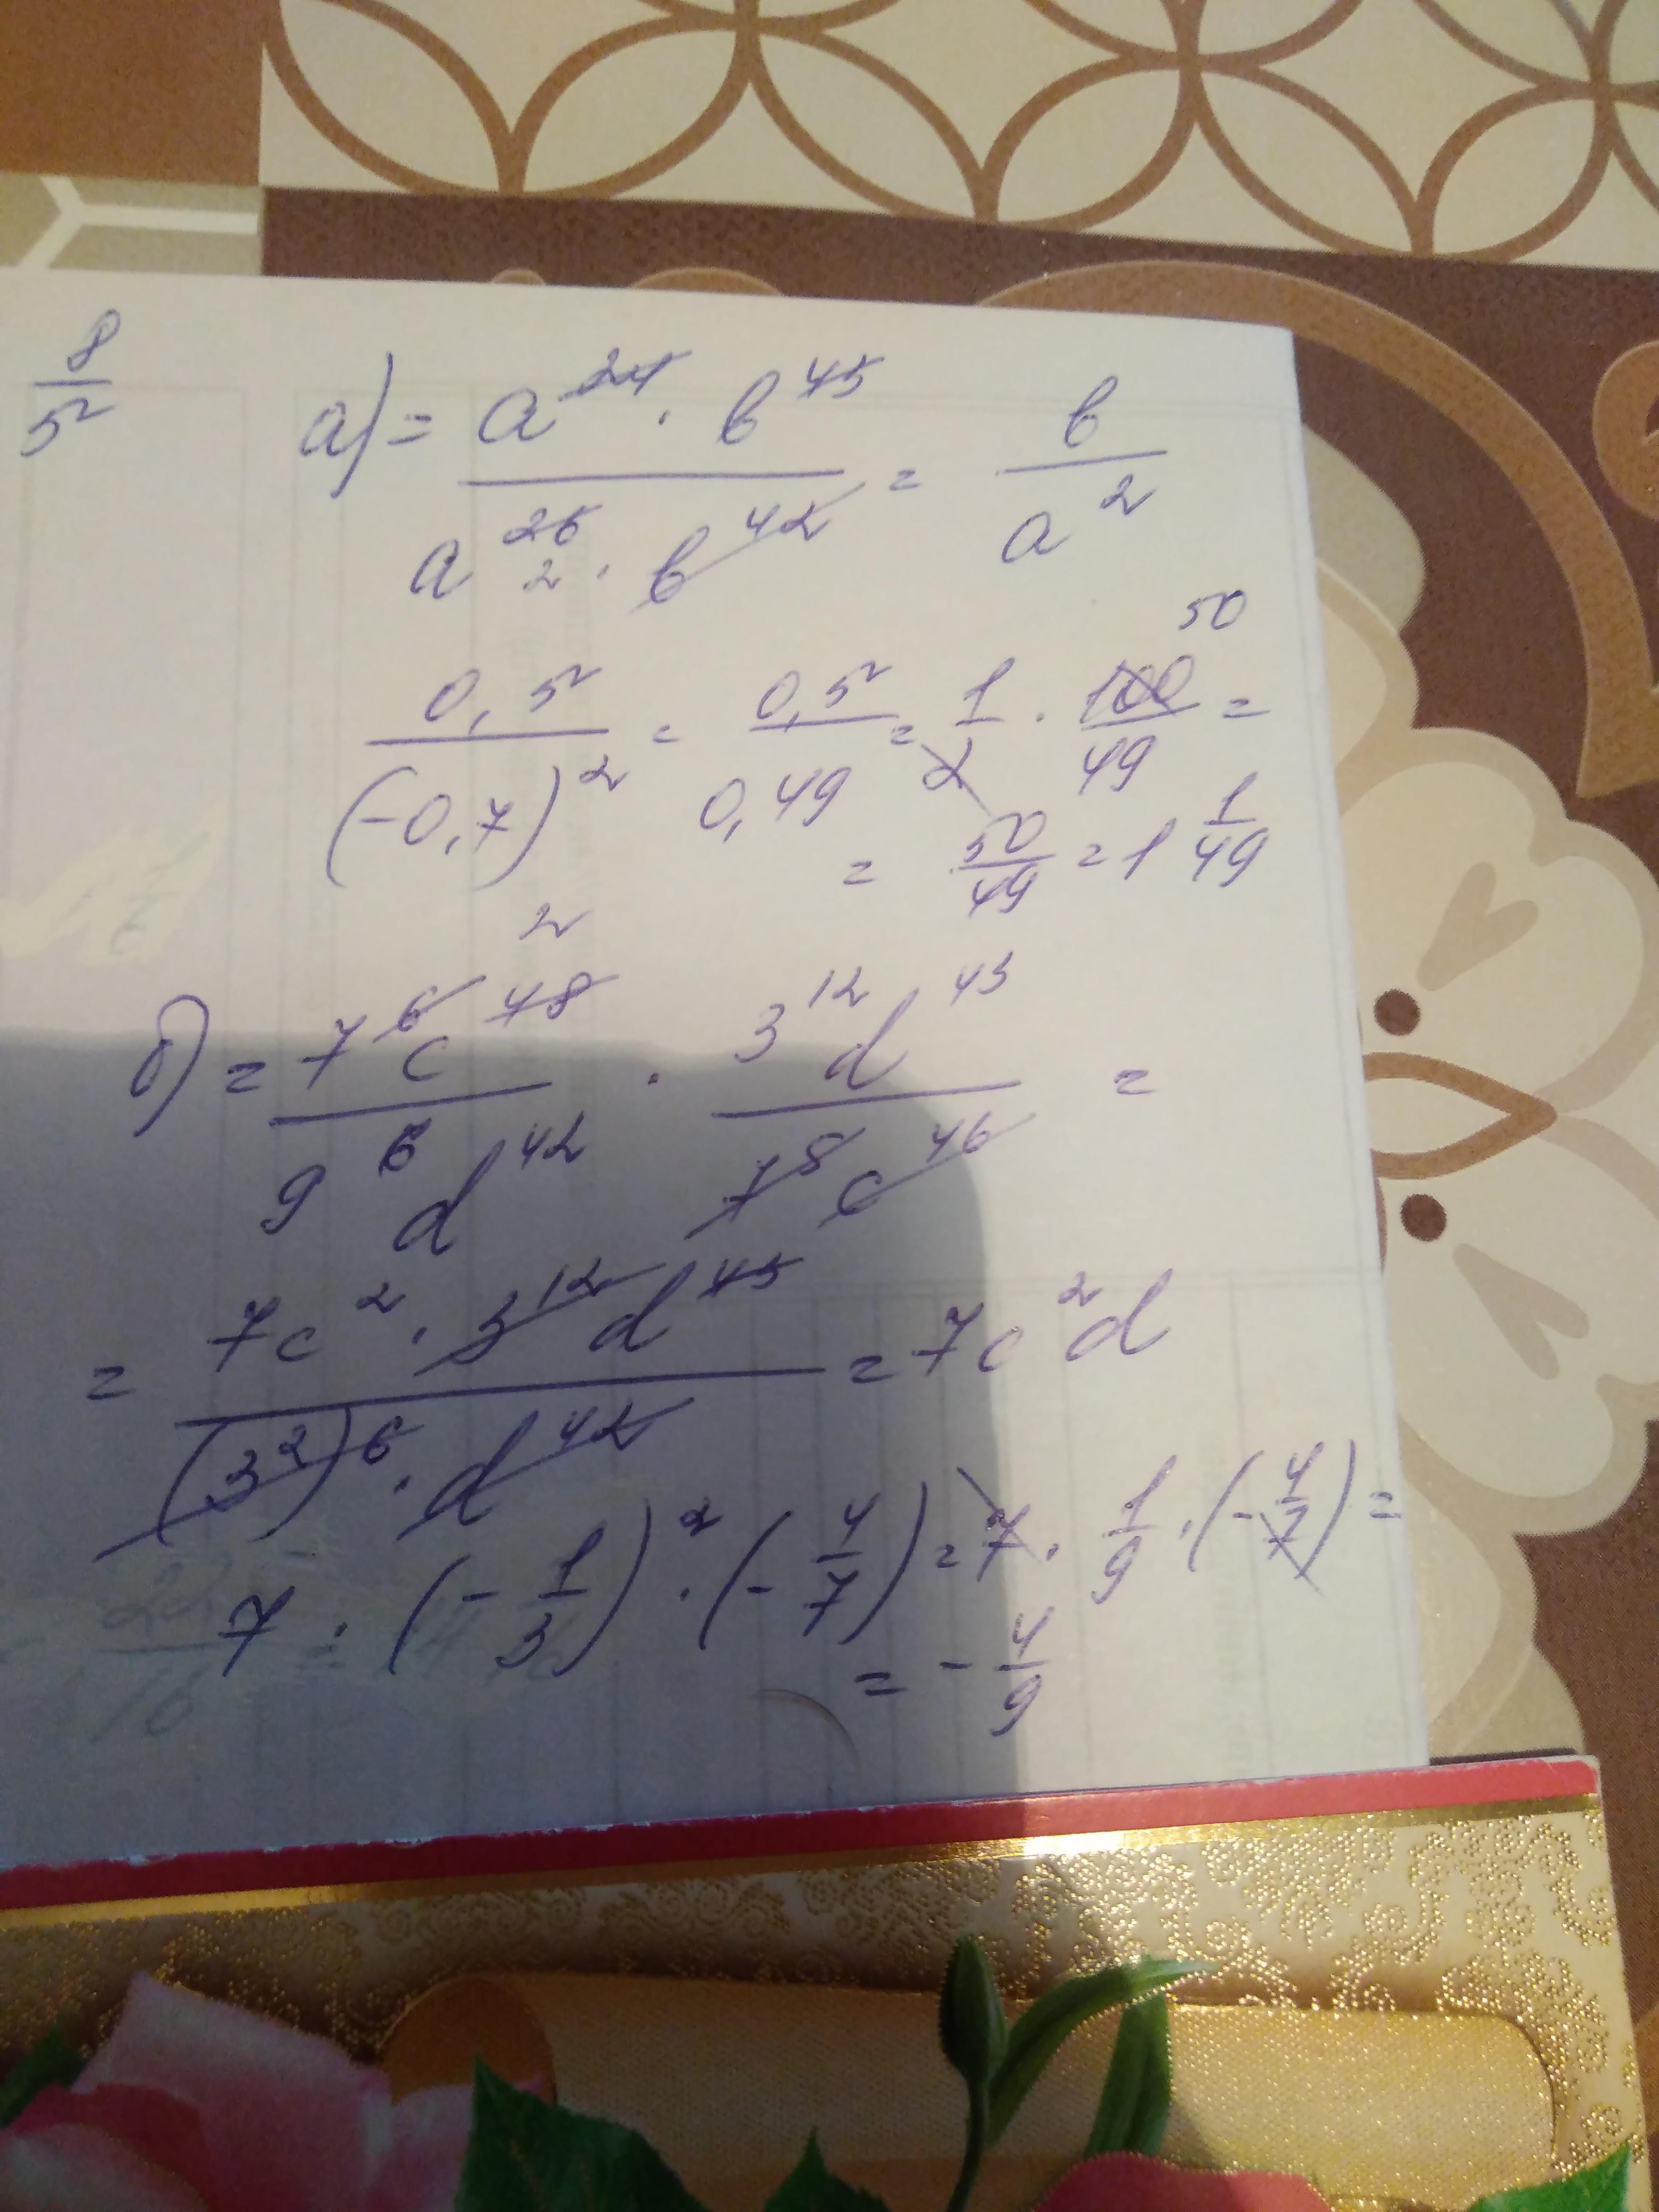 8/5²
а) = a²⁴ · b⁴⁵ / a²⁶ ₂ · b⁴² = b / a²
0,5² / (-0,7)² = 0,5² / 0,49 = 1/2 · 100/49 = 50
= 50/49 = 1 1/49
2
б) = 7⁶c⁴⁸ / 9⁶d⁴² · 3¹²d⁴³ / 7⁵c⁴⁶ =
= 7c² · 3¹²d⁴³ / (3²)⁶ · d⁴² = 7c²d
7 · (-1/3)² · (-4/7) = 7 · 1/9 · (-4/7) =
= -4/9